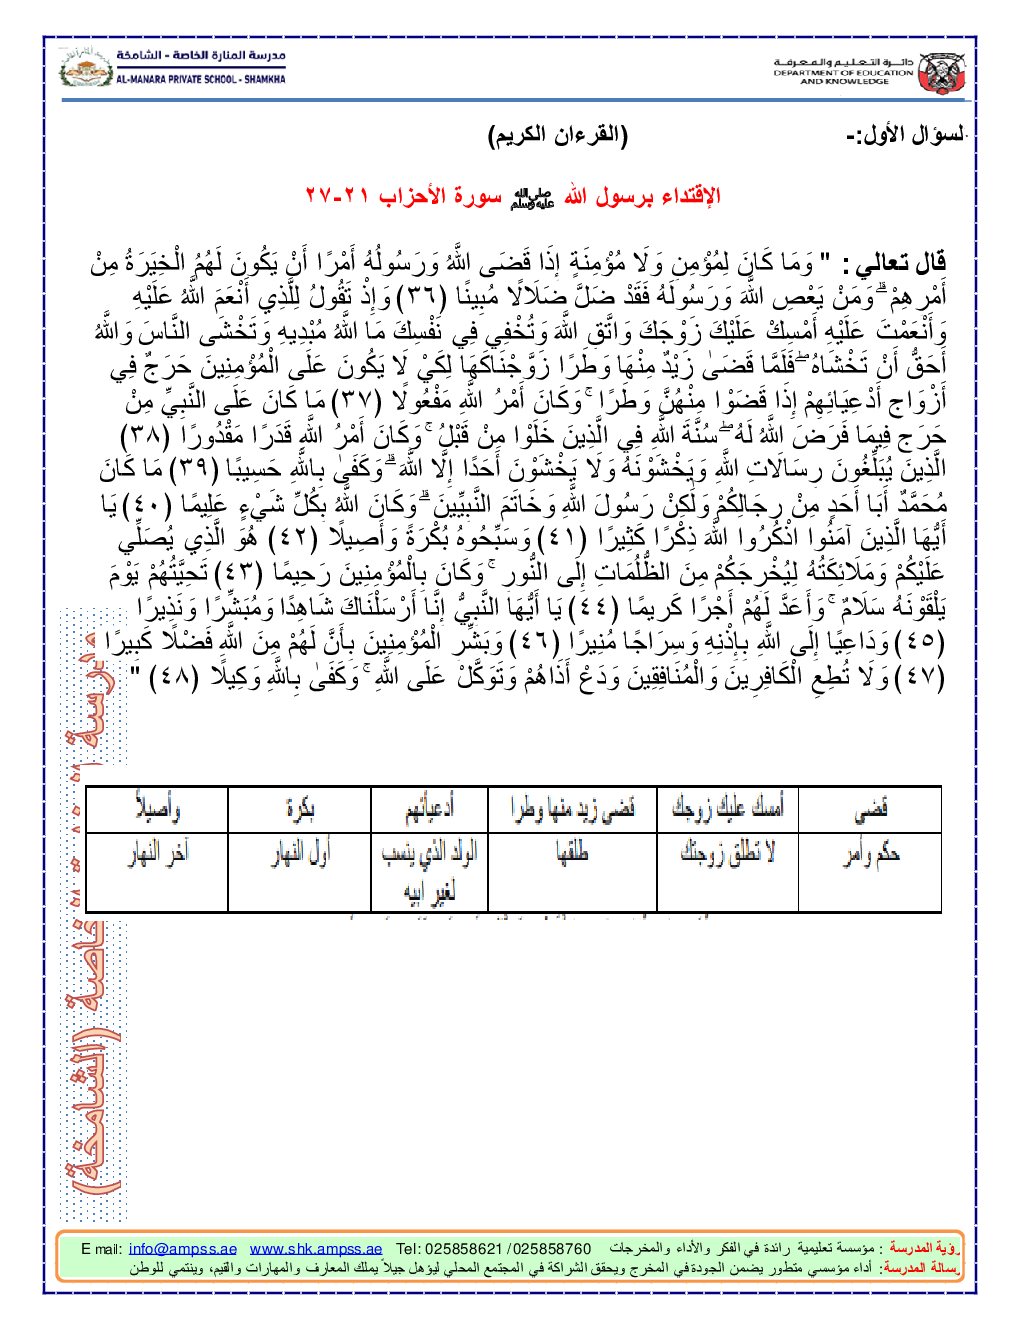 مدرسة المنارة الخاصة - الشامخة
AL-MANARA PRIVATE SCHOOL - SHAMKHA
دائرة التعليم والمعرفة
DEPARTMENT OF EDUCATION
AND KNOWLEDGE
لسؤال الأول:- (القرءان الكريم)
الإقتداء برسول الله ﷺ سورة الأحزاب ٢١-٢٧
قال تعالي : " وَمَا كَانَ لِمُؤْمِنٍ وَلَا مُؤْمِنَةٍ إِذَا قَضَى اللَّهُ وَرَسُولُهُ أَمْرًا أَنْ يَكُونَ لَهُمُ الْخِيَرَةُ مِنْ
أَمْرِهِمْ ۗ وَمَنْ يَعْصِ اللَّهَ وَرَسُولَهُ فَقَدْ ضَلَّ ضَلَالًا مُبِينًا (٣٦) وَإِذْ تَقُولُ لِلَّذِي أَنْعَمَ اللَّهُ عَلَيْهِ
وَأَنْعَمْتَ عَلَيْهِ أَمْسِكْ عَلَيْكَ زَوْجَكَ وَاتَّقِ اللَّهَ وَتُخْفِي فِي نَفْسِكَ مَا اللَّهُ مُبْدِيهِ وَتَخْشَى النَّاسَ وَاللَّهُ
أَحَقُّ أَنْ تَخْشَاهُ ۖ فَلَمَّا قَضَىٰ زَيْدٌ مِنْهَا وَطَرًا زَوَّجْنَاكَهَا لِكَيْ لَا يَكُونَ عَلَى الْمُؤْمِنِينَ حَرَجٌ فِي
أَزْوَاجِ أَدْعِيَائِهِمْ إِذَا قَضَوْا مِنْهُنَّ وَطَرًا ۚ وَكَانَ أَمْرُ اللَّهِ مَفْعُولًا (٣٧) مَا كَانَ عَلَى النَّبِيِّ مِنْ
حَرَجٍ فِيمَا فَرَضَ اللَّهُ لَهُ ۖ سُنَّةَ اللَّهِ فِي الَّذِينَ خَلَوْا مِنْ قَبْلُ ۚ وَكَانَ أَمْرُ اللَّهِ قَدَرًا مَقْدُورًا (٣٨)
الَّذِينَ يُبَلِّغُونَ رِسَالَاتِ اللَّهِ وَيَخْشَوْنَهُ وَلَا يَخْشَوْنَ أَحَدًا إِلَّا اللَّهَ ۗ وَكَفَىٰ بِاللَّهِ حَسِيبًا (٣٩) مَا كَانَ
مُحَمَّدٌ أَبَا أَحَدٍ مِنْ رِجَالِكُمْ وَلَٰكِنْ رَسُولَ اللَّهِ وَخَاتَمَ النَّبِيِّينَ ۗ وَكَانَ اللَّهُ بِكُلِّ شَيْءٍ عَلِيمًا (٤٠) يَا
أَيُّهَا الَّذِينَ آمَنُوا اذْكُرُوا اللَّهَ ذِكْرًا كَثِيرًا (٤١) وَسَبِّحُوهُ بُكْرَةً وَأَصِيلًا (٤٢) هُوَ الَّذِي يُصَلِّي
عَلَيْكُمْ وَمَلَائِكَتُهُ لِيُخْرِجَكُمْ مِنَ الظُّلُمَاتِ إِلَى النُّورِ ۚ وَكَانَ بِالْمُؤْمِنِينَ رَحِيمًا (٤٣) تَحِيَّتُهُمْ يَوْمَ
يَلْقَوْنَهُ سَلَامٌ ۚ وَأَعَدَّ لَهُمْ أَجْرًا كَرِيمًا (٤٤) يَا أَيُّهَا النَّبِيُّ إِنَّا أَرْسَلْنَاكَ شَاهِدًا وَمُبَشِّرًا وَنَذِيرًا
(٤٥) وَدَاعِيًا إِلَى اللَّهِ بِإِذْنِهِ وَسِرَاجًا مُنِيرًا (٤٦) وَبَشِّرِ الْمُؤْمِنِينَ بِأَنَّ لَهُمْ مِنَ اللَّهِ فَضْلًا كَبِيرًا
(٤٧) وَلَا تُطِعِ الْكَافِرِينَ وَالْمُنَافِقِينَ وَدَعْ أَذَاهُمْ وَتَوَكَّلْ عَلَى اللَّهِ ۚ وَكَفَىٰ بِاللَّهِ وَكِيلًا (٤٨) "
قضى أمسك عليك زوجك قضى زيد منها وطرا أدعيائهم بكرة وأصيلاً
حكم وأمر لا تطلق زوجتك طلقها الولد الذي ينسب أول النهار آخر النهار
لغير ابيه
مدرسة
خاصة (الشامخة)
رؤية المدرسة : مؤسسة تعليمية رائدة في الفكر والأداء والمخرجات Tel: 025858621 /025858760 www.shk.ampss.ae E mail: info@ampss.ae
رسالة المدرسة: أداء مؤسسي متطور يضمن الجودة في المخرج ويحقق الشراكة في المجتمع المحلي ليؤهل جيلاً يملك المعارف والمهارات والقيم، وينتمي للوطن